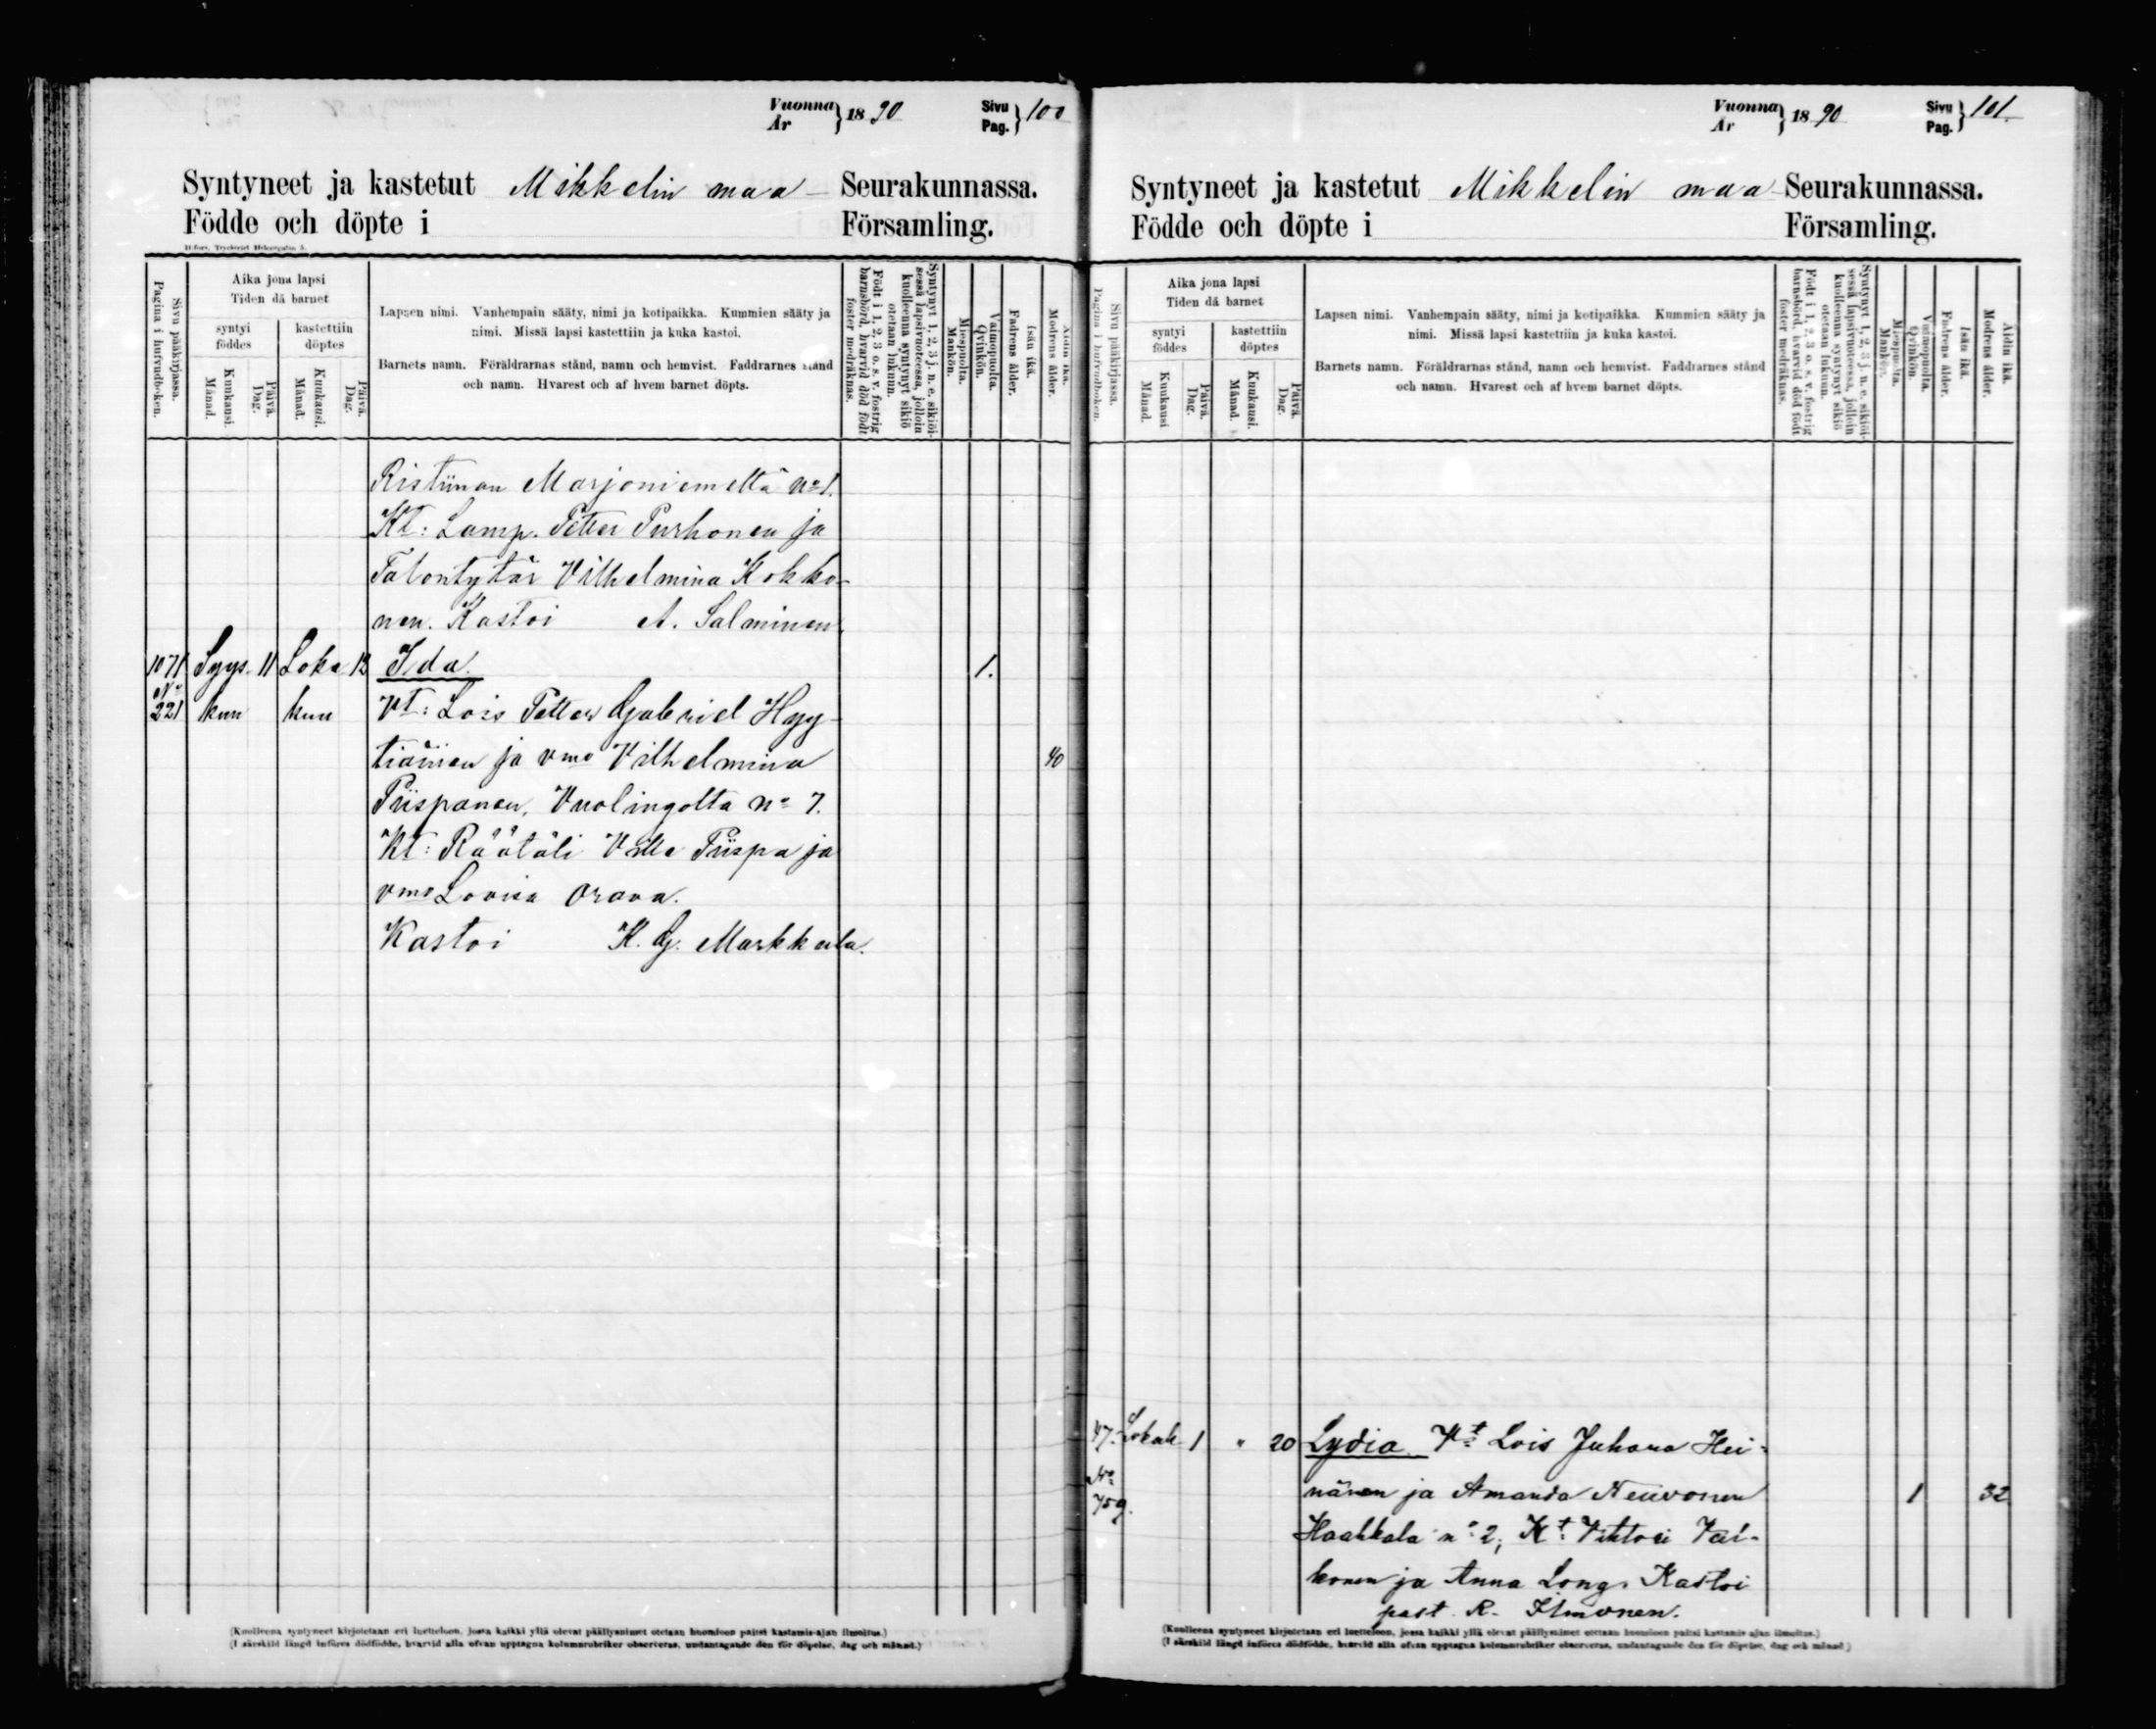 Vuonna
År } 18 90
Sivu
Pag. } 100
Syntyneet ja kastetut Mikkelin maa- Seurakunnassa.
Födde och döpte i Församling.
H:fors, Tryckeriet Helenegatan 5.
Sivu pääkirjassa.
Pagina i hufvudboken.
Aika jona lapsi
Tiden då barnet
syntyi
föddes
kastettiin
döptes
Kuukausi.
Månad.
Päivä.
Dag.
Kuukausi.
Månad.
Päivä.
Dag.
Lapsen nimi. Vanhempain sääty, nimi ja kotipaikka. Kummien sääty ja
nimi. Missä lapsi kastettiin ja kuka kastoi.
Barnets namn. Föräldrarnas stånd, namn och hemvist. Faddrarnes stånd
och namn. Hvarest och af hvem barnet döpts.
Syntynyt 1, 2, 3 j. n. e. sikiöi-
sessä lapsivuoteessa, jolloin
kuolleenna syntynyt sikiö
otetaan lukuun.
Född i 1, 2, 3 o. s. v. fostrig
barnsbörd, hvarvid död född
foster medräknas.
Miespuolta.
Mankön.
Vaimopuolta.
Qvinkön.
Isän ikä.
Fadrens ålder.
Äidin ikä.
Modrens ålder.
Ristiinan Marjoniemeltä No 1.
Kt: Lamp. Petter Purhonen ja
Talontytär Vilhelmina Kokko-
nen. Kastoi A. Salminen.
1071 Syys 11 Loka 12 Ida. 1.
No
221 kuu kuu Vt: Lois Petter Gabriel Hyy-
tiäinen ja vmo Vilhelmina 40
Piispanen, Vuolingolta No 7.
Kt: Räätäli Ville Piispa ja
vmo Lovisa Orava.
Kastoi K. G. Markkula.
(Kuolleena syntyneet kirjoitetaan eri luetteloon, jossa kaikki yllä olevat päällysnimet otetaan huomioon paitsi kastamis-ajan ilmoitus.)
(I särskild längd införes dödfödde, hvarvid alla ofvan upptagna kolumnrubriker observeras, undantagande den för döpelse, dag och månad.)
Vuonna
År } 18 90
Sivu
Pag. } 101.
Syntyneet ja kastetut Mikkelin maa- Seurakunnassa.
Födde och döpte i Församling.
Sivu pääkirjassa.
Pagina i hufvudboken.
Aika jona lapsi
Tiden då barnet
syntyi
föddes
kastettiin
döptes
Kuukausi
Månad.
Päivä.
Dag.
Kuukausi.
Månad.
Päivä.
Dag.
Lapsen nimi. Vanhempain sääty, nimi ja kotipaikka. Kummien sääty ja
nimi. Missä lapsi kastettiin ja kuka kastoi.
Barnets namn. Föräldrarnas stånd, namn och hemvist. Faddrarnes stånd
och namn. Hvarest och af hvem barnet döpts.
Syntynyt 1, 2, 3 j. n. e. sikiöi-
sessä lapsivuoteessa, jolloin
kuolleenna syntynyt sikiö
otetaan lukuun.
Född i 1, 2, 3 o. s. v. fostrig
barnsbörd, hvarvid död född
foster medräknas.
Miespuolta.
Mankön.
Vaimopuolta.
Qvinkön.
Isän ikä.
Fadrens ålder.
Äidin ikä.
Modrens ålder.
47. Lokak 1 " 20 Lydia Vt: Lois Juhana Hei-
No
759. nänen ja Amanda Neuvonen 1 32
Haahkala no 2; Kt: Vihtori Vai-
konen ja Anna Long. Kastoi
past. R. Ilmonen.
(Kuolleena syntyneet kirjoitetaan eri luetteloon, jossa kaikki yllä olevat päällysnimet otetaan huomioon paitsi kastamis ajan ilmoitus.)
(I särskild längd införes dödfödde, hvarvid alla ofvan upptagna kolumnrubriker observeras, undantagande den för döpelse, dag och månad.)